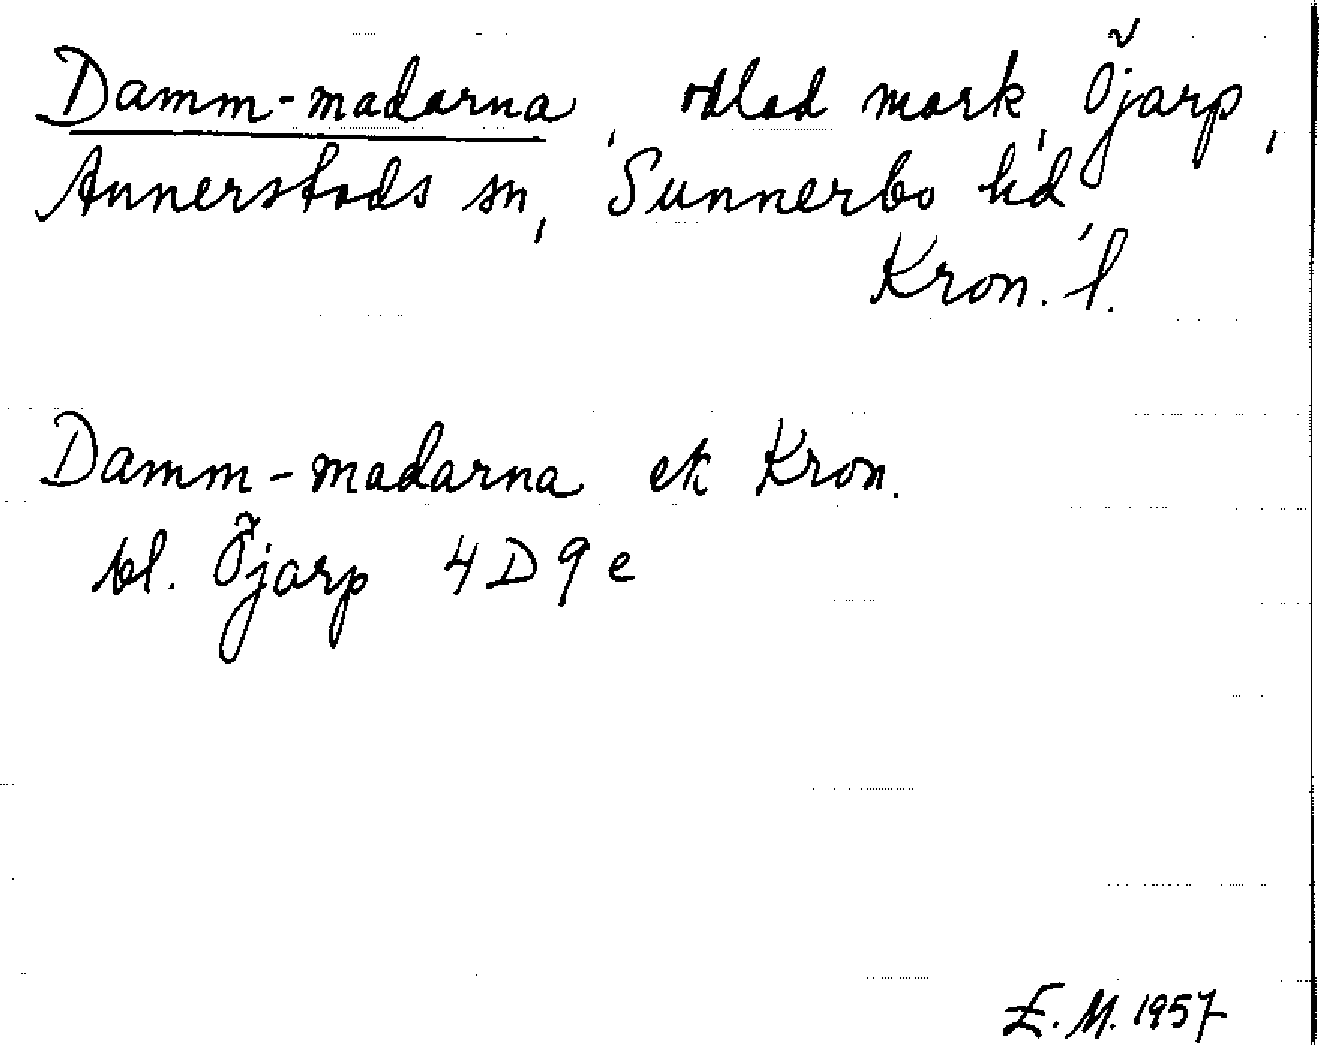 Damm-madarna, odlad mark, Öjarp,
Annerstads sn, Sunnerbo hd,
Kron. l.
Damm-madarna ek Kron.
bl. Öjarp 4D9e
E. M. 1957